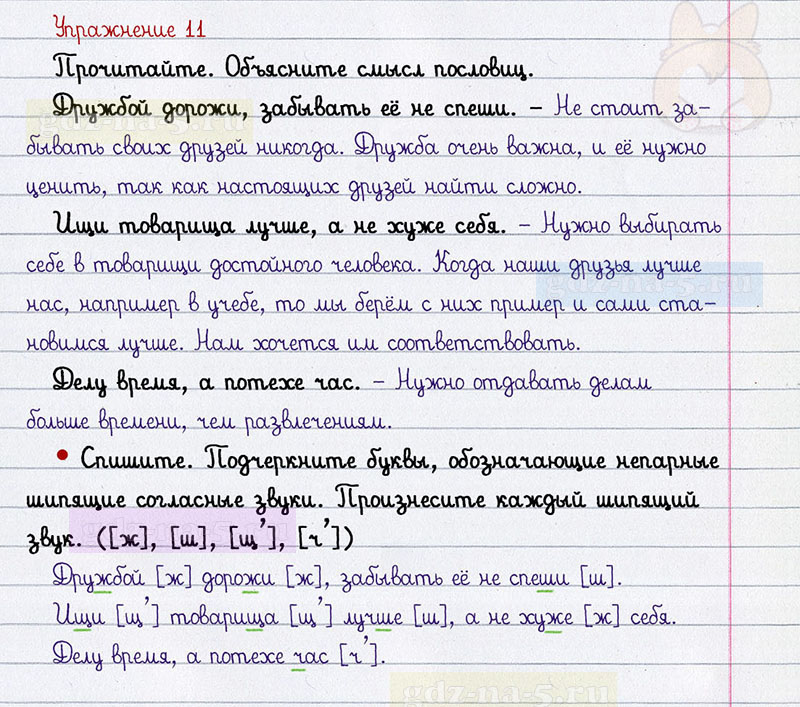 Упражнение 11
Прочитайте. Объясните смысл пословиц.
Дружбой дорожи, забывать её не спеши. – Не стоит за-
бывать своих друзей никогда. Дружба очень важна, и её нужно
ценить, так как настоящих друзей найти сложно.
Ищи товарища лучше, а не хуже себя. – Нужно выбирать
себе в товарищи достойного человека. Когда наши друзья лучше
нас, например в учебе, то мы берём с них пример и сами ста-
новимся лучше. Нам хочется им соответствовать.
Делу время, а потехе час. – Нужно отдавать делам
больше времени, чем развлечениям.
• Спишите. Подчеркните буквы, обозначающие непарные
шипящие согласные звуки. Произнесите каждый шипящий
звук. ([ж], [ш], [щ’], [ч’])
Дружбой [ж] дорожи [ж], забывать её не спеши [ш].
Ищи [щ’] товарища [щ’] лучше [ш], а не хуже [ж] себя.
Делу время, а потехе час [ч’].
gdz-na-5.ru
gdz-na-5.ru
gdz-na-5.ru
gdz-na-5.ru